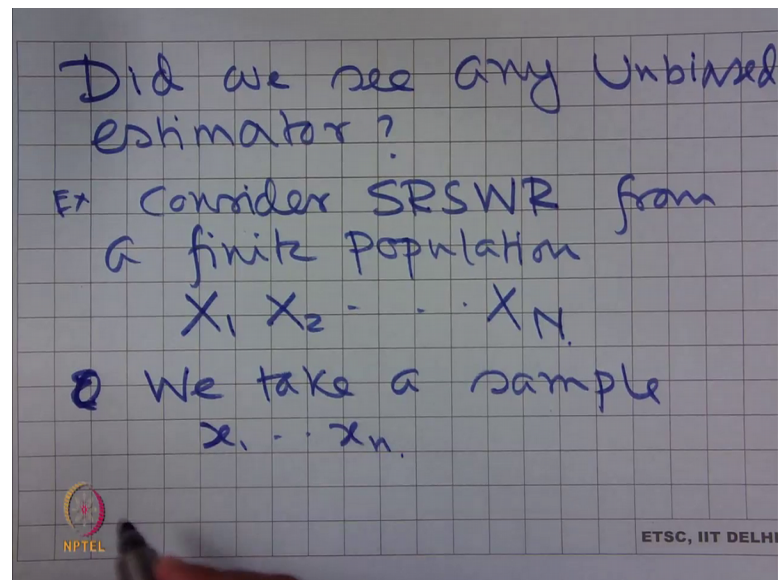 Did we see any Unbiased
estimator?
Ex Consider SRSWR from
a finite population
X₁ X₂ - . . . X_N.
We take a sample
x₁ . . . x_n.
NPTEL
ETSC, IIT DELHI